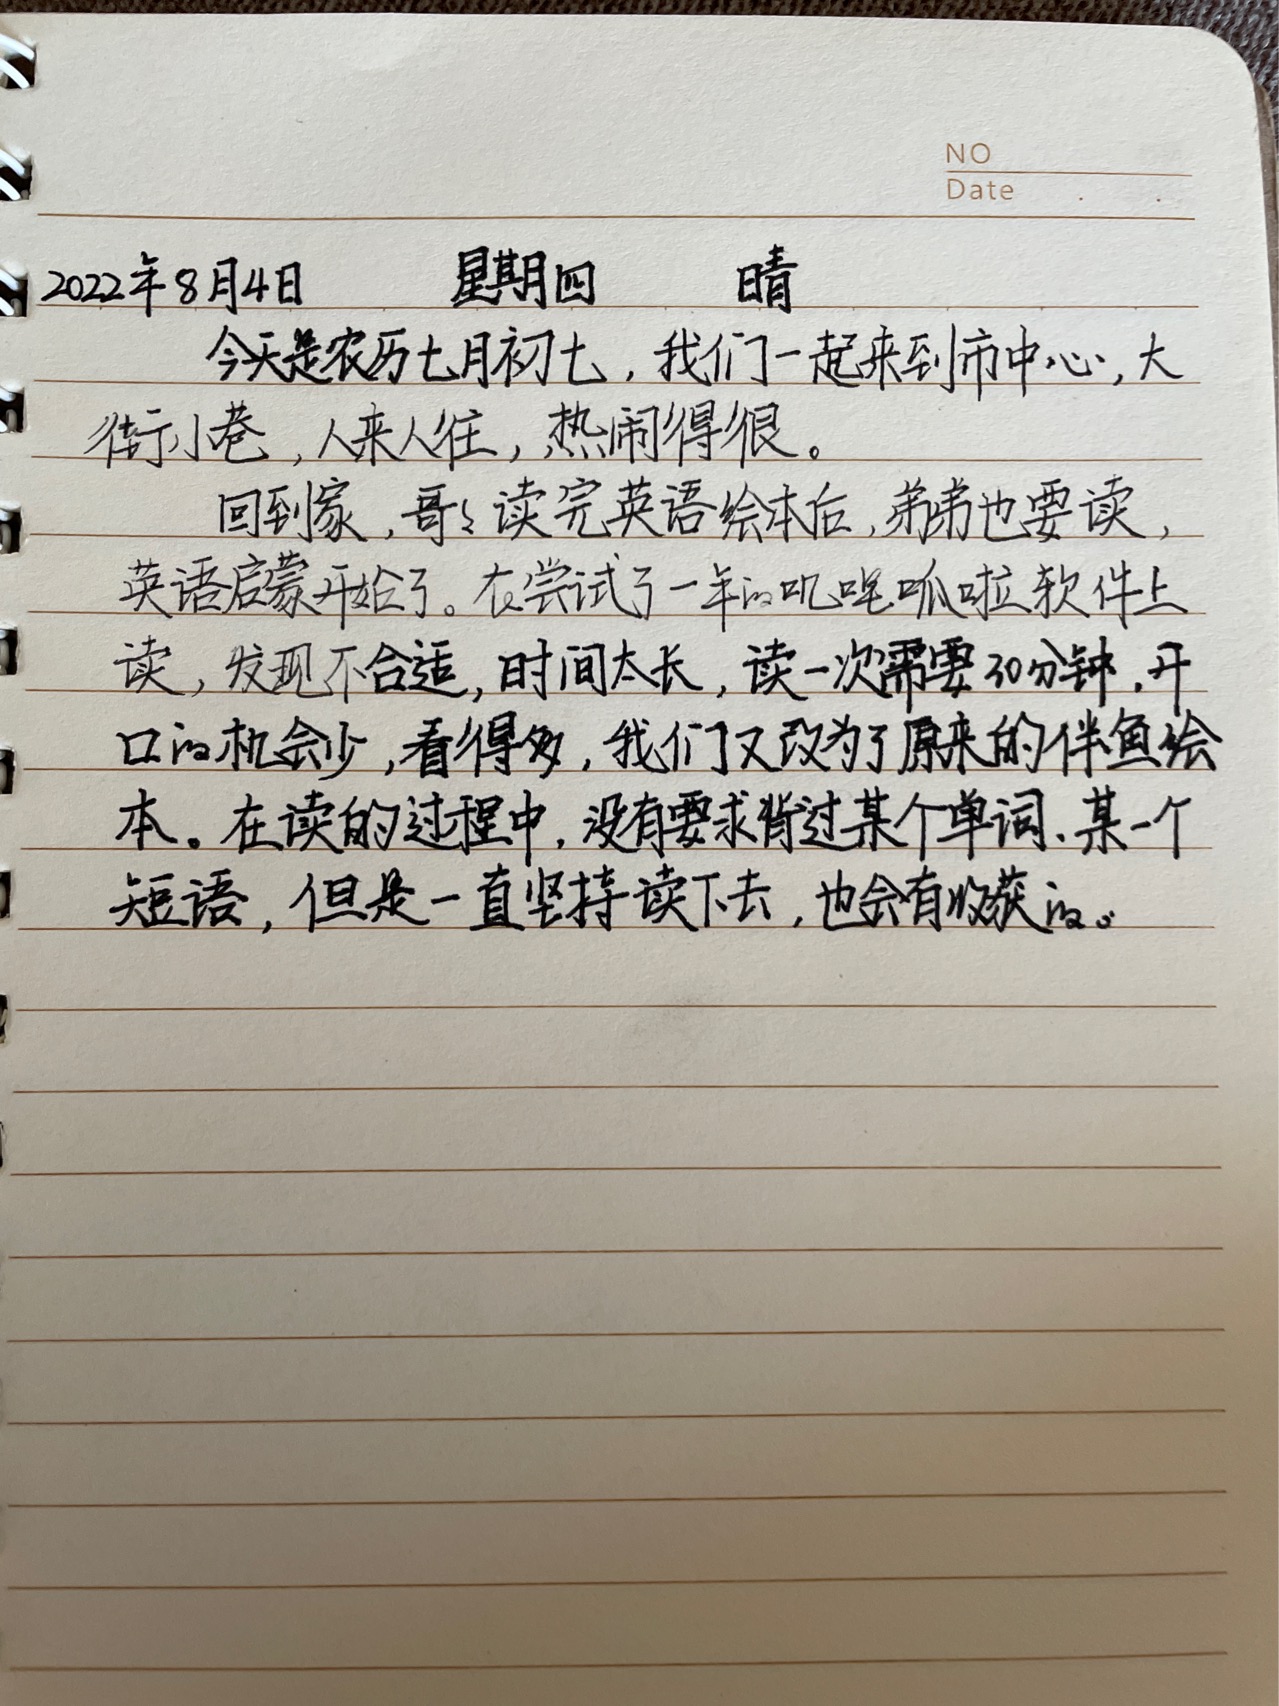 NO
Date . .
2022年8月4日 星期四 晴
今天是农历七月初七，我们一起来到市中心，大
街小巷，人来人往，热闹得很。
回到家，哥〻读完英语绘本后，弟弟也要读，
英语启蒙开始了。在尝试了一年的叽哩呱啦软件上
读，发现不合适，时间太长，读一次需要30分钟，开
口的机会少，看得多，我们又改为了原来的伴鱼绘
本。在读的过程中，没有要求背过某个单词、某一个
短语，但是一直坚持读下去，也会有收获的。